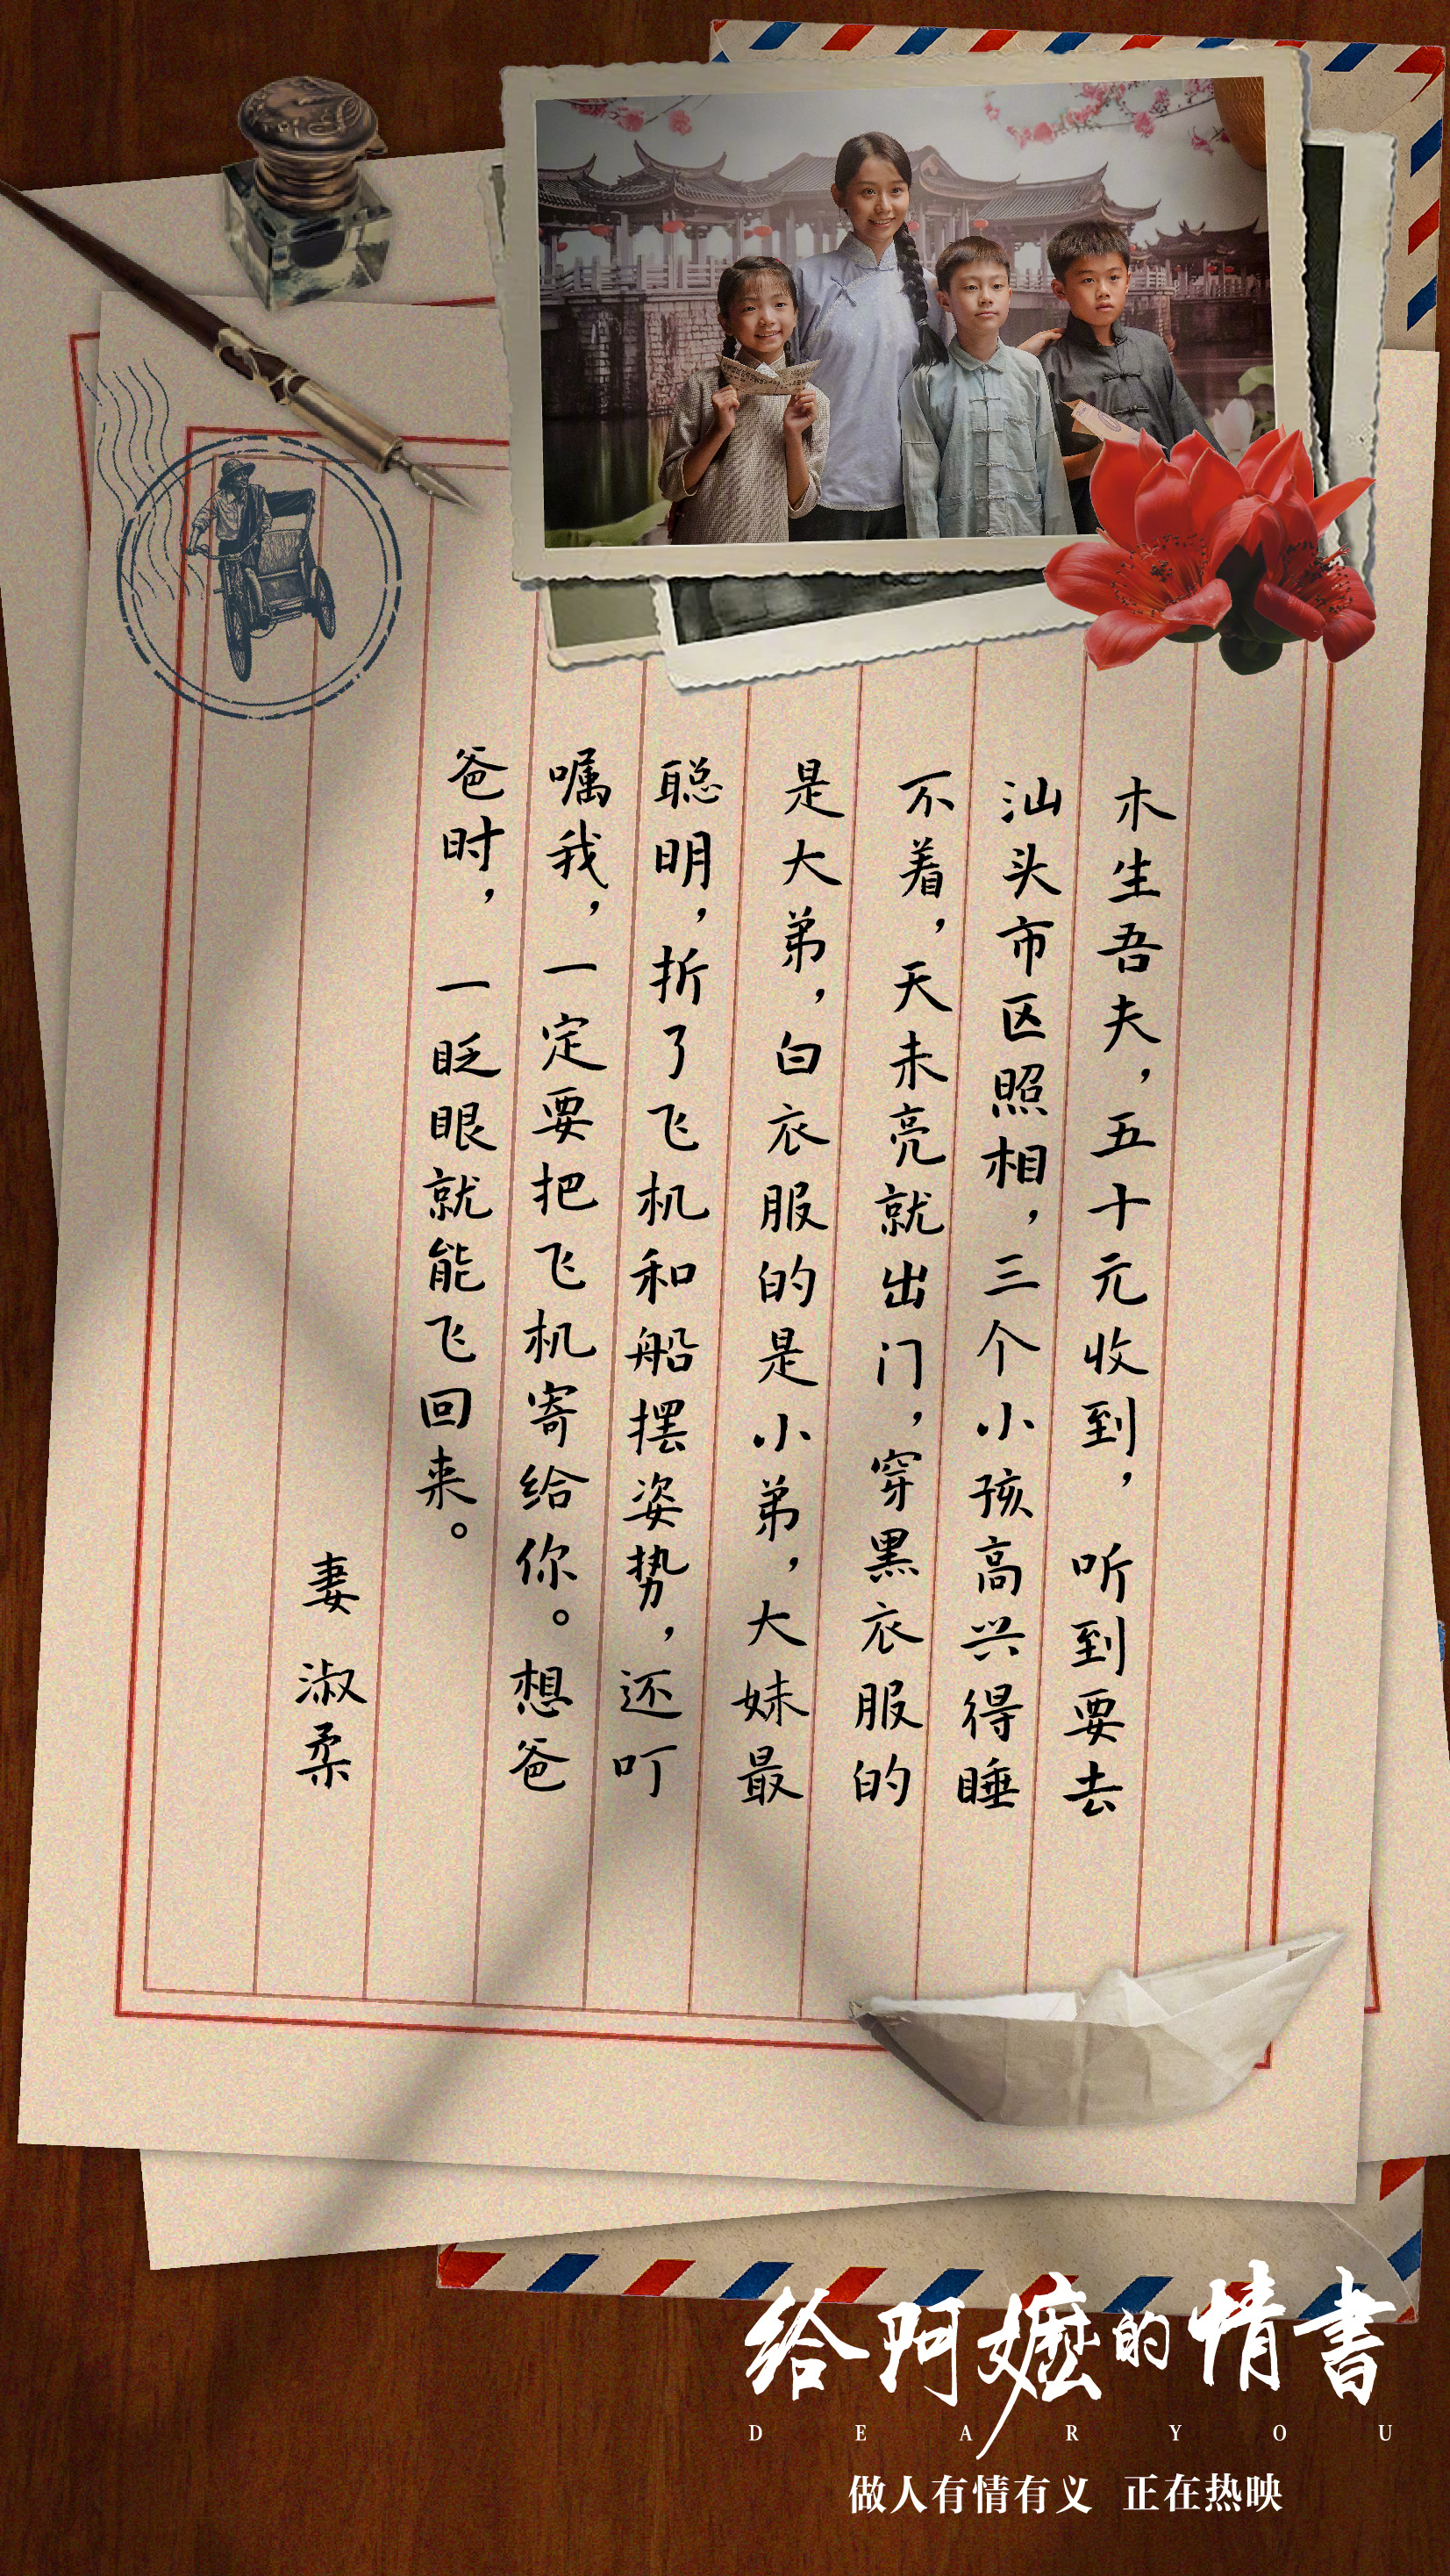 木生吾夫，五十元收到，听到要去
汕头市区照相，三个小孩高兴得睡
不着，天未亮就出门，穿黑衣服的
是大弟，白衣服的是小弟，大妹最
聪明，折了飞机和船摆姿势，还叮
嘱我，一定要把飞机寄给你。想爸
爸时，一眨眼就能飞回来。
妻 淑柔
给阿嬷的情書
DEAR YOU
做人有情有义 正在热映